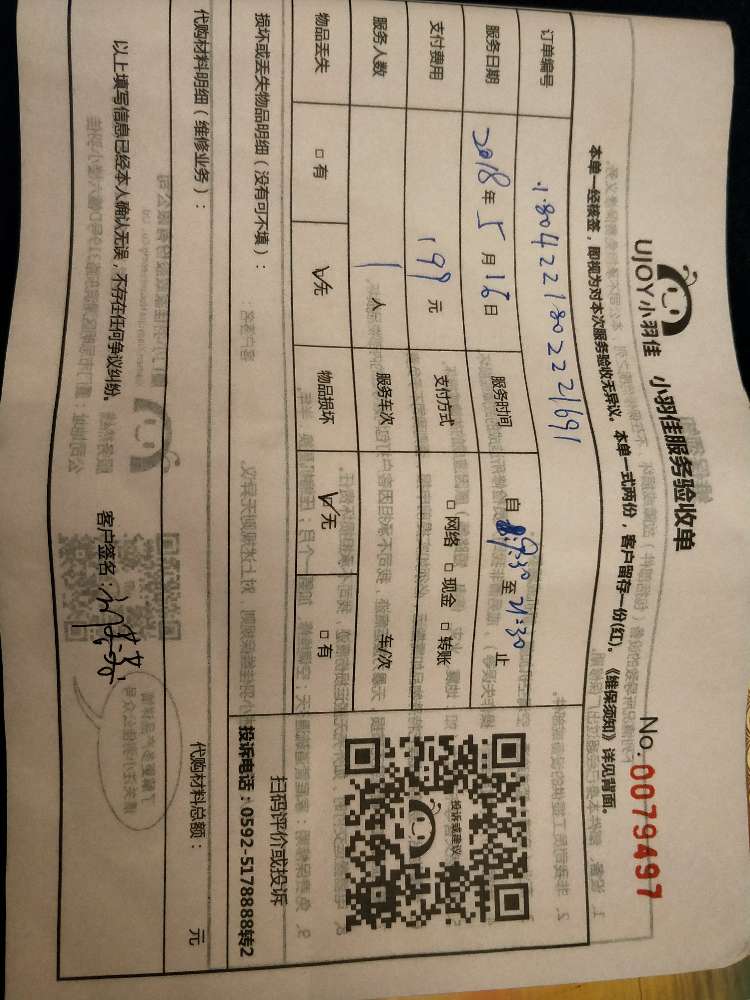 UJOY小羽佳 小羽佳服务验收单
No: 0079497
本单一经核签，即视为对本次服务验收无异议。本单一式两份，客户留存一份(红)。《维保须知》详见背面。
订单编号 1804221802221691
服务日期 2018年5月16日 服务时间 自 19:30 至 21:30 止
支付费用 199元 支付方式 □网络 □现金 □转账
服务人数 1人 服务车次 车/次
物品丢失 □有 ☑无 物品损坏 ☑无 □有
投诉或建议
扫码评价或投诉
投诉电话：0592-5178888转2
损坏或丢失物品明细（没有可不填）：
代购材料明细（维修业务）： 代购材料总额： 元
以上填写信息已经本人确认无误，不存在任何争议纠纷。 客户签名：